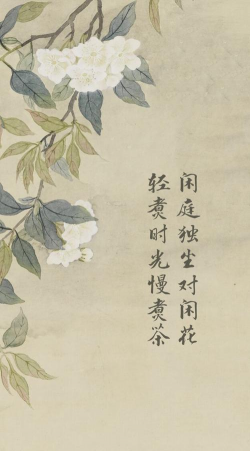 闲庭独坐对闲花
轻煮时光慢煮茶